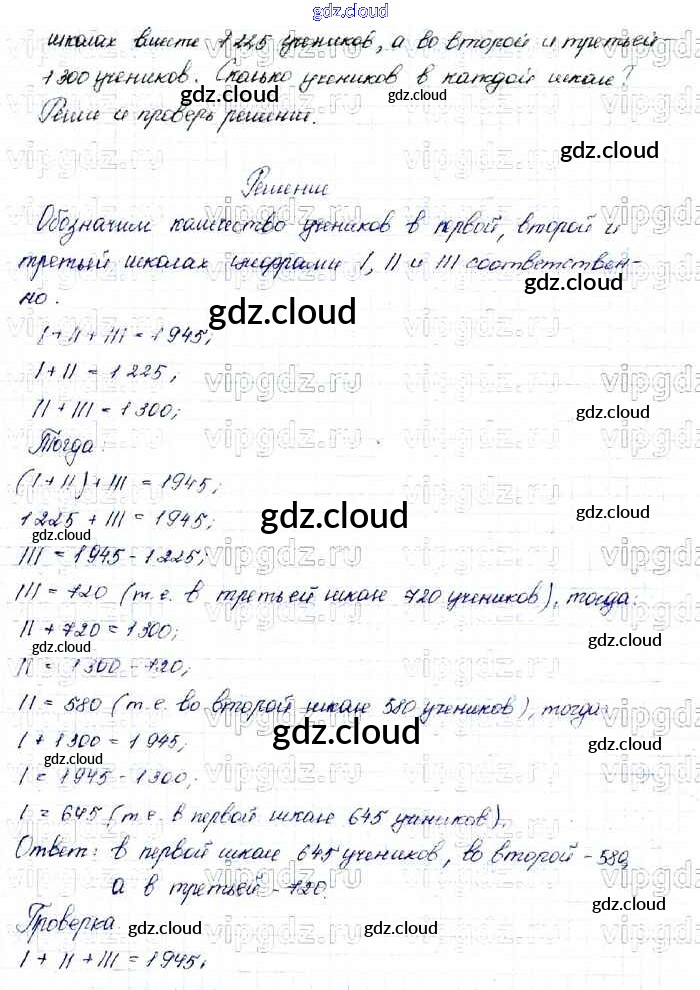 gdz.cloud
школах вместе 1225 учеников, а во второй и третьей -
1300 учеников. Сколько учеников в каждой школе?
gdz.cloud gdz.cloud
Реши и проверь решение.
gdz.cloud
vipgdz.ru
Решение
Обозначим количество учеников в первой, второй и
третьей школах цифрами I, II и III соответствен-
но.
gdz.cloud gdz.cloud
I + II + III = 1945;
I + II = 1225;
vipgdz.ru
II + III = 1300;
gdz.cloud
Тогда:
(I + II) + III = 1945;
1225 + III = 1945;
gdz.cloud
gdz.cloud gdz.cloud
III = 1945 - 1225;
III = 720 (т.е. в третьей школе 720 учеников), тогда:
II + 720 = 1300;
gdz.cloud
II = 1300 - 720;
II = 580 (т.е. во второй школе 580 учеников), тогда:
I + 1300 = 1945;
gdz.cloud gdz.cloud
I = 1945 - 1300;
I = 645 (т.е. в первой школе 645 учеников).
Ответ: в первой школе 645 учеников, во второй - 580,
а в третьей - 720.
gdz.cloud
Проверка
gdz.cloud gdz.cloud
I + II + III = 1945;